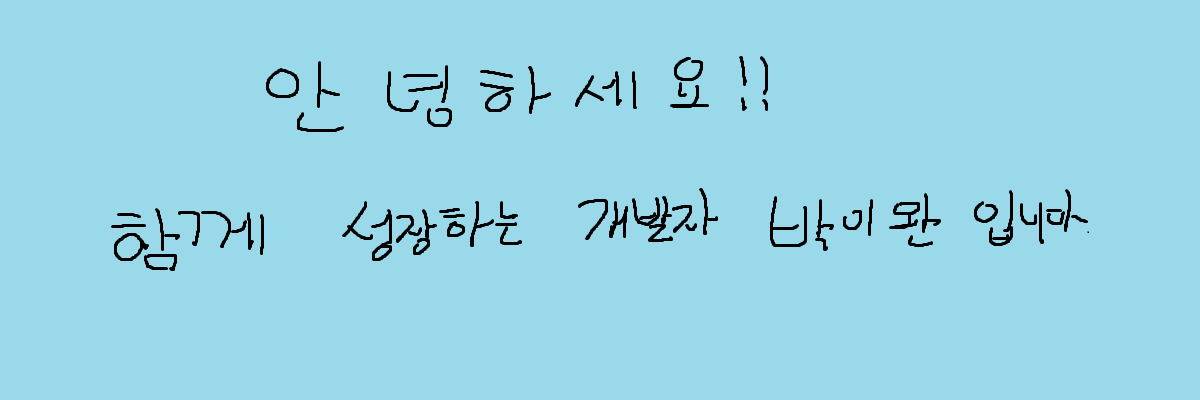 안녕하세요!!
함께 성장하는 개발자 박이완 입니다.